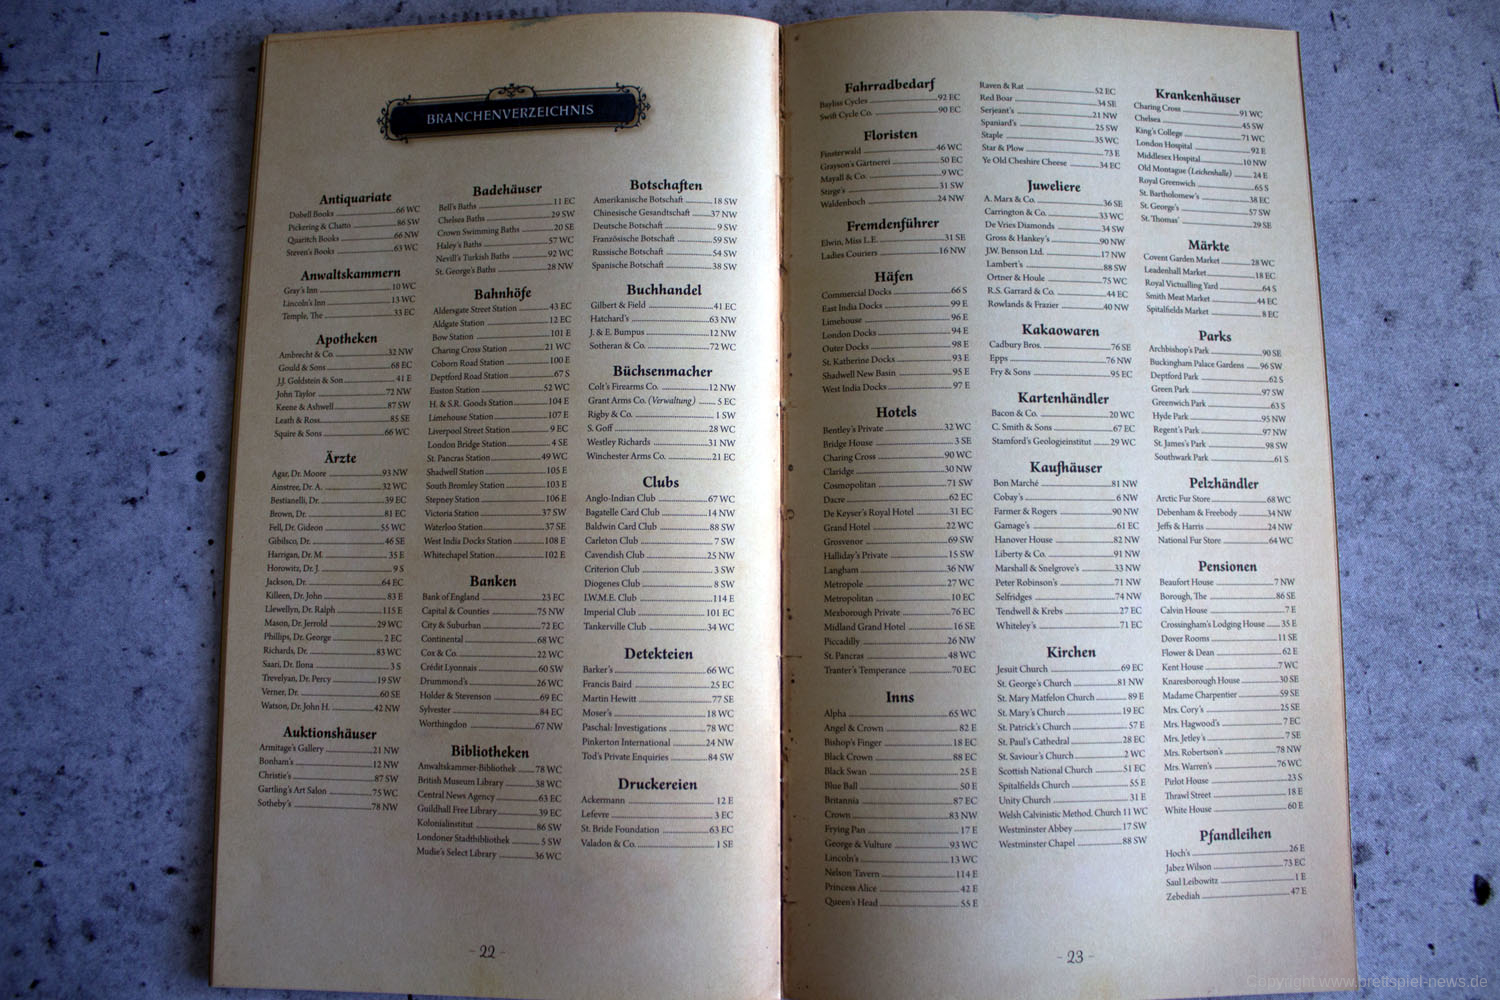 BRANCHENVERZEICHNIS
Antiquariate
Dobell Books 66 WC
Pickering & Chatto 86 SW
Quaritch Books 66 NW
Steven's Books 63 WC
Anwaltskammern
Gray's Inn 10 WC
Lincoln's Inn 13 WC
Temple, The 33 EC
Apotheken
Ambrecht & Co. 32 NW
Gould & Sons 68 EC
J.J. Goldstein & Son 41 E
John Taylor 72 NW
Keene & Ashwell 87 SW
Leath & Ross 85 SE
Squire & Sons 66 WC
Ärzte
Agar, Dr. Moore 93 NW
Ainstree, Dr. A. 32 WC
Bestianelli, Dr. 39 EC
Brown, Dr. 81 EC
Fell, Dr. Gideon 55 WC
Gibilso, Dr. 46 SE
Harrigan, Dr. M. 35 E
Horowitz, Dr. J. 9 S
Jackson, Dr. 64 EC
Killeen, Dr. John 83 E
Llewellyn, Dr. Ralph 115 E
Mason, Dr. Jerrold 29 WC
Phillips, Dr. George 2 EC
Richards, Dr. 83 WC
Saari, Dr. Ilona 3 S
Trevelyan, Dr. Percy 19 SW
Verner, Dr. 60 SE
Watson, Dr. John H. 42 NW
Auktionshäuser
Armitage's Gallery 21 NW
Bonham's 12 NW
Christie's 87 SW
Gartling's Art Salon 75 WC
Sotheby's 78 NW
Badehäuser
Bell's Baths 11 EC
Chelsea Baths 29 SW
Crown Swimming Baths 20 SE
Haley's Baths 57 WC
Nevill's Turkish Baths 92 WC
St. George's Baths 28 NW
Bahnhöfe
Aldersgate Street Station 43 EC
Aldgate Station 12 EC
Bow Station 101 E
Charing Cross Station 21 WC
Coborn Road Station 100 E
Deptford Road Station 67 S
Euston Station 52 WC
H. & S.R. Goods Station 104 E
Limehouse Station 107 E
Liverpool Street Station 9 EC
London Bridge Station 4 SE
St. Pancras Station 49 WC
Shadwell Station 105 E
South Bromley Station 103 E
Stepney Station 106 E
Victoria Station 37 SW
Waterloo Station 37 SE
West India Docks Station 108 E
Whitechapel Station 102 E
Banken
Bank of England 23 EC
Capital & Counties 75 NW
City & Suburban 72 EC
Continental 68 WC
Cox & Co. 22 WC
Crédit Lyonnais 60 SW
Drummond's 26 WC
Holder & Stevenson 69 EC
Sylvester 84 EC
Worthingdon 67 NW
Bibliotheken
Anwaltskammer-Bibliothek 78 WC
British Museum Library 38 WC
Central News Agency 63 EC
Guildhall Free Library 39 EC
Kolonialinstitut 86 SW
Londoner Stadtbibliothek 5 SW
Mudie's Select Library 36 WC
Botschaften
Amerikanische Botschaft 18 SW
Chinesische Gesandtschaft 37 NW
Deutsche Botschaft 9 SW
Französische Botschaft 59 SW
Russische Botschaft 54 SW
Spanische Botschaft 38 SW
Buchhandel
Gilbert & Field 41 EC
Hatchard's 63 NW
J. & E. Bumpus 12 NW
Sotheran & Co. 72 WC
Büchsenmacher
Colt's Firearms Co. 12 NW
Grant Arms Co. (Verwaltung) 5 EC
Rigby & Co. 1 SW
S. Goff 28 WC
Westley Richards 31 NW
Winchester Arms Co. 21 EC
Clubs
Anglo-Indian Club 67 WC
Bagatelle Card Club 14 NW
Baldwin Card Club 88 SW
Carleton Club 7 SW
Cavendish Club 25 NW
Criterion Club 3 SW
Diogenes Club 8 SW
I.W.M.E. Club 114 E
Imperial Club 101 EC
Tankerville Club 34 WC
Detekteien
Barker's 66 WC
Francis Baird 25 EC
Martin Hewitt 77 SE
Moser's 18 WC
Paschal: Investigations 78 WC
Pinkerton International 24 NW
Tod's Private Enquiries 84 SW
Druckereien
Ackermann 12 E
Lefevre 3 EC
St. Bride Foundation 63 EC
Valadon & Co. 1 SE
- 22 -
Fahrradbedarf
Bayliss Cycles 92 EC
Swift Cycle Co. 90 EC
Floristen
Finsterwald 46 WC
Grayson's Gärtnerei 50 EC
Mayall & Co. 9 WC
Stirge's 31 SW
Waldenboch 24 NW
Fremdenführer
Elwin, Miss L.E. 31 SE
Ladies Couriers 16 NW
Häfen
Commercial Docks 66 S
East India Docks 99 E
Limehouse 96 E
London Docks 94 E
Outer Docks 98 E
St. Katherine Docks 93 E
Shadwell New Basin 95 E
West India Docks 97 E
Hotels
Bentley's Private 32 WC
Bridge House 3 SE
Charing Cross 90 WC
Claridge 30 NW
Cosmopolitan 71 SW
Dacre 62 EC
De Keyser's Royal Hotel 31 EC
Grand Hotel 22 WC
Grosvenor 69 SW
Halliday's Private 15 SW
Langham 36 NW
Metropole 27 WC
Metropolitan 10 EC
Mexborough Private 76 EC
Midland Grand Hotel 16 SE
Piccadilly 26 NW
St. Pancras 48 WC
Tranter's Temperance 70 EC
Inns
Alpha 65 WC
Angel & Crown 82 E
Bishop's Finger 18 EC
Black Crown 88 EC
Black Swan 25 E
Blue Ball 50 E
Britannia 87 EC
Crown 83 NW
Frying Pan 17 E
George & Vulture 93 WC
Lincoln's 13 WC
Nelson Tavern 114 E
Princess Alice 42 E
Queen's Head 55 E
Raven & Rat 52 EC
Red Boar 34 SE
Serjeant's 21 NW
Spaniard's 25 SW
Staple 35 WC
Star & Plow 73 E
Ye Old Cheshire Cheese 34 EC
Juweliere
A. Marx & Co. 36 SE
Carrington & Co. 33 WC
De Vries Diamonds 34 SW
Gross & Hankey's 90 NW
J.W. Benson Ltd. 17 NW
Lambert's 88 SW
Ortner & Houle 75 WC
R.S. Garrard & Co. 44 EC
Rowlands & Frazier 40 NW
Kakaowaren
Cadbury Bros. 76 SE
Epps 76 NW
Fry & Sons 95 EC
Kartenhändler
Bacon & Co. 20 WC
C. Smith & Sons 67 EC
Stamford's Geologieinstitut 29 WC
Kaufhäuser
Bon Marché 81 NW
Cobay's 6 NW
Farmer & Rogers 90 NW
Gamage's 61 EC
Hanover House 82 NW
Liberty & Co. 91 NW
Marshall & Snelgrove's 33 NW
Peter Robinson's 71 NW
Selfridges 74 NW
Tendwell & Krebs 27 EC
Whiteley's 71 EC
Kirchen
Jesuit Church 69 EC
St. George's Church 81 NW
St. Mary Matfelon Church 89 E
St. Mary's Church 19 EC
St. Patrick's Church 57 E
St. Paul's Cathedral 28 EC
St. Saviour's Church 2 WC
Scottish National Church 51 EC
Spitalfields Church 55 E
Unity Church 31 E
Welsh Calvinistic Method. Church 11 WC
Westminster Abbey 17 SW
Westminster Chapel 88 SW
Krankenhäuser
Charing Cross 91 WC
Chelsea 45 SW
King's College 71 WC
London Hospital 92 E
Middlesex Hospital 10 NW
Old Montague (Leichenhalle) 24 E
Royal Greenwich 65 S
St. Bartholomew's 38 EC
St. George's 57 SW
St. Thomas' 29 SE
Märkte
Covent Garden Market 28 WC
Leadenhall Market 18 EC
Royal Victualling Yard 64 S
Smith Meat Market 44 EC
Spitalfields Market 8 EC
Parks
Archbishop's Park 90 SE
Buckingham Palace Gardens 96 SW
Deptford Park 62 S
Green Park 97 SW
Greenwich Park 63 S
Hyde Park 95 NW
Regent's Park 97 NW
St. James's Park 98 SW
Southwark Park 61 S
Pelzhändler
Arctic Fur Store 68 WC
Debenham & Freebody 34 NW
Jeffs & Harris 24 NW
National Fur Store 64 WC
Pensionen
Beaufort House 7 NW
Borough, The 86 SE
Calvin House 7 E
Crossingham's Lodging House 35 E
Dover Rooms 11 SE
Flower & Dean 62 E
Kent House 7 WC
Knaresborough House 30 SE
Madame Charpentier 59 SE
Mrs. Cory's 25 SE
Mrs. Hagwood's 7 EC
Mrs. Jetley's 7 SE
Mrs. Robertson's 78 NW
Mrs. Warren's 76 WC
Pirlot House 23 S
Thrawl Street 18 E
White House 60 E
Pfandleihen
Hoch's 26 E
Jabez Wilson 73 EC
Saul Leibowitz 1 E
Zebediah 47 E
- 23 -
Copyright www.brettspiel-news.de